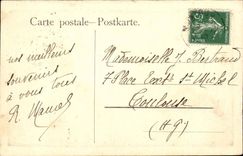 Carte postale — Postkarte.
nos meilleurs
souvenirs
à vous tous
R. Marcel
Mademoiselle J. Bertrand
7 Place St Michel
Toulouse
(Hg)